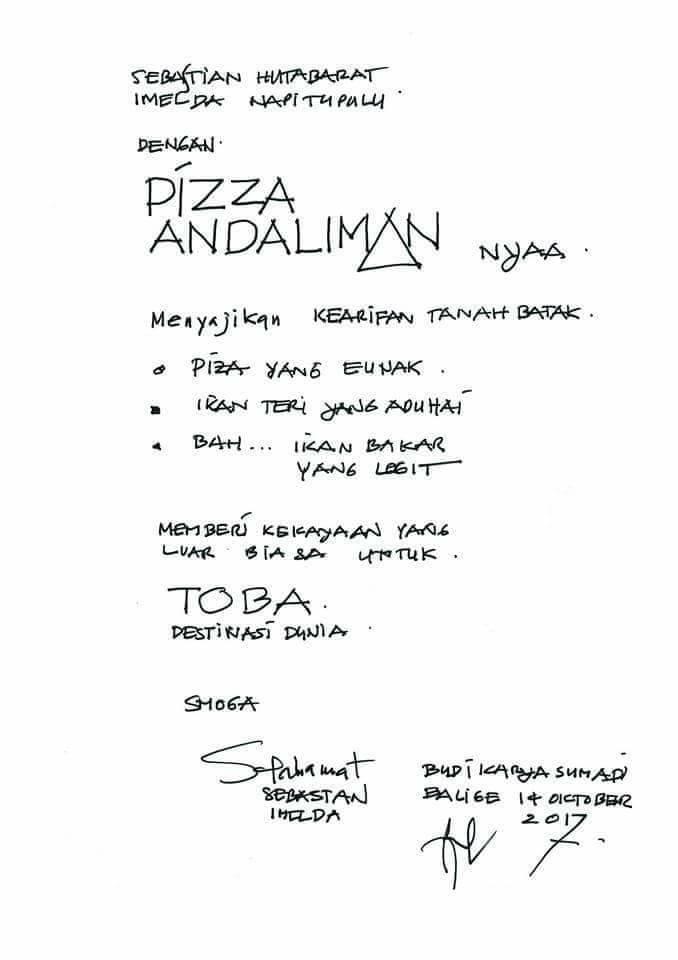 SEBASTIAN HUTABARAT
IMELDA NAPITUPULU.
DENGAN.
PIZZA
ANDALIMAN NYAA.
Menyajikan KEARIFAN TANAH BATAK.
PIZA YANG EUNAK.
IKAN TERI YANG ADUHAI
BAH... IKAN BAKAR
YANG LEGIT
MEMBERI KEKAYAAN YANG
LUAR BIASA UNTUK.
TOBA.
DESTINASI DUNIA.
SMOGA
SEBASTAN
IMELDA
BUDI KARYA SUMADI
BALIGE 14 OKTOBER
2017